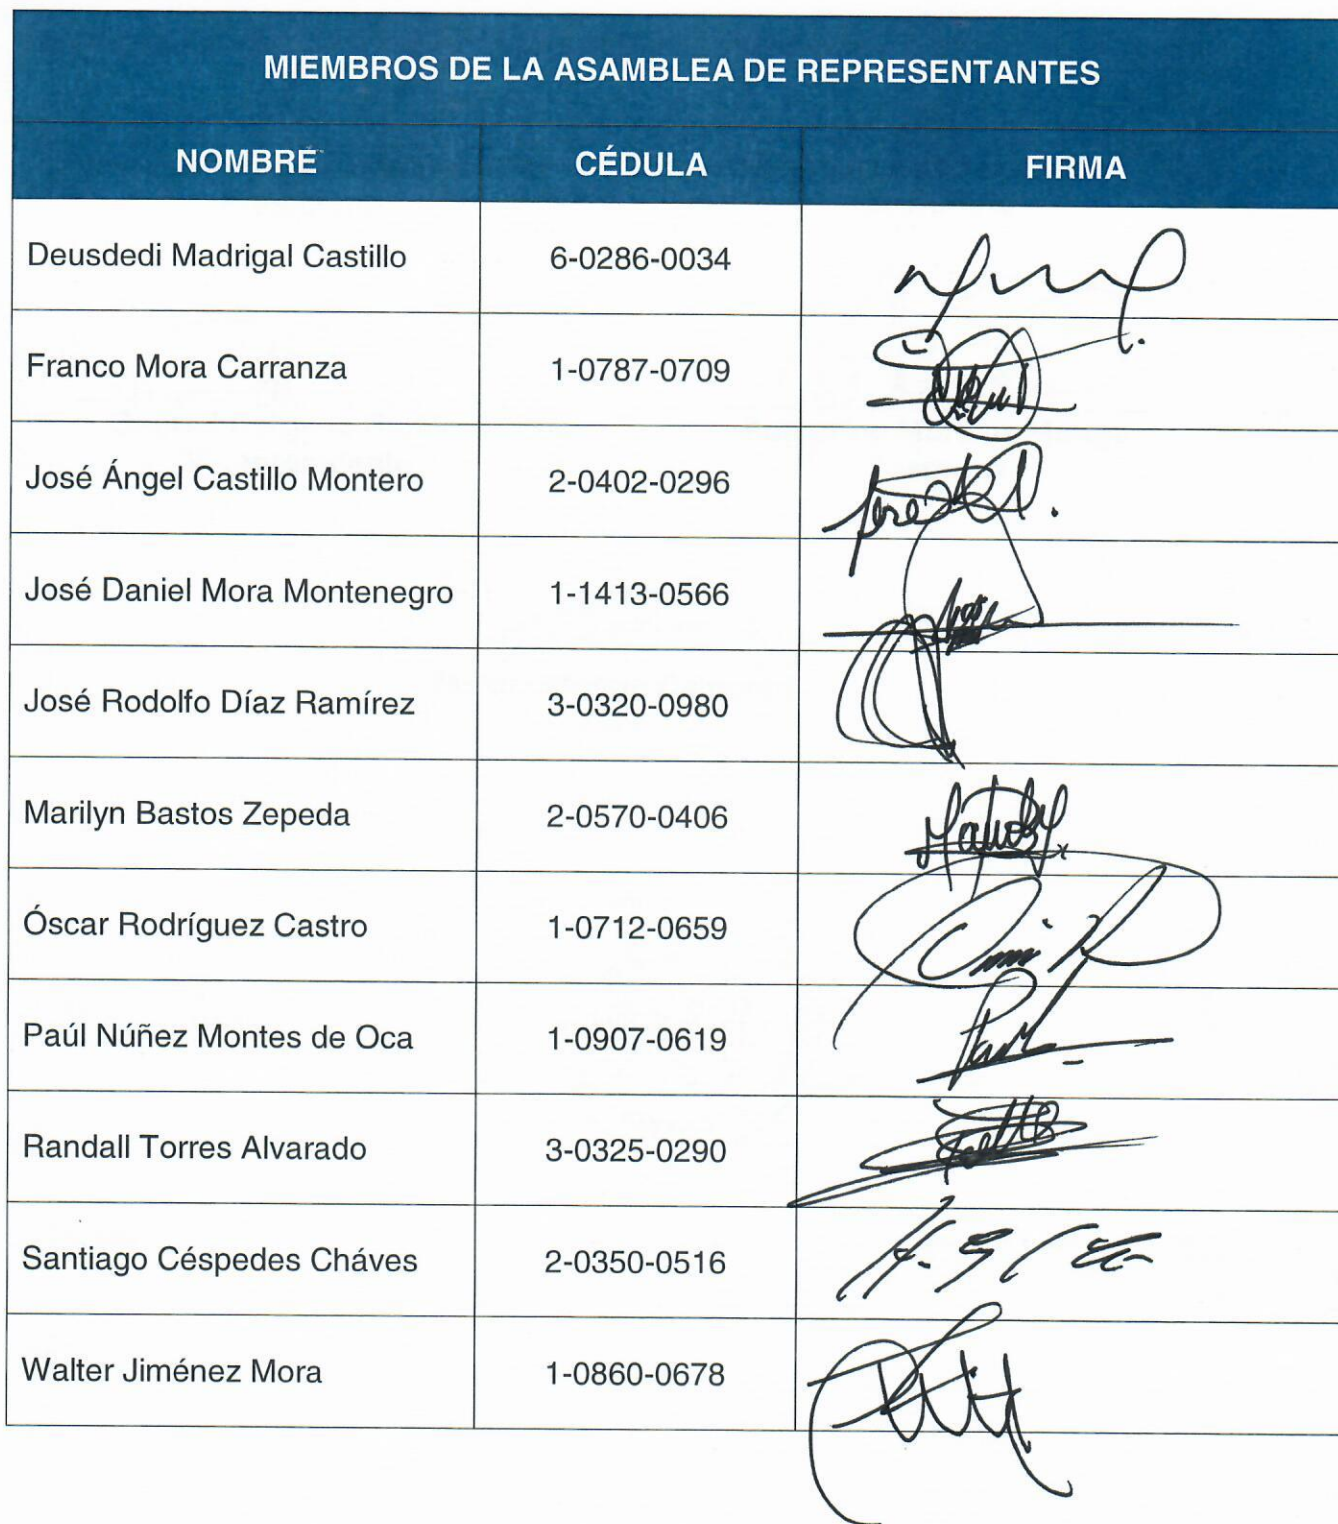 MIEMBROS DE LA ASAMBLEA DE REPRESENTANTES
NOMBRE CÉDULA FIRMA
Deusdedi Madrigal Castillo 6-0286-0034
Franco Mora Carranza 1-0787-0709
José Ángel Castillo Montero 2-0402-0296
José Daniel Mora Montenegro 1-1413-0566
José Rodolfo Díaz Ramírez 3-0320-0980
Marilyn Bastos Zepeda 2-0570-0406
Óscar Rodríguez Castro 1-0712-0659
Paúl Núñez Montes de Oca 1-0907-0619
Randall Torres Alvarado 3-0325-0290
Santiago Céspedes Cháves 2-0350-0516
Walter Jiménez Mora 1-0860-0678